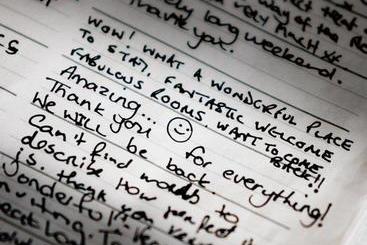 Thank you!
ly long weekend.
WOW! WHAT A WONDERFUL PLACE
TO STAY. FANTASTIC WELCOME
FABULOUS ROOMS. WANT TO COME
BACK!!
Amazing...
Thank you ☺ for everything!
We will be back.
Can't find words to
describe how perfect it
is. thank you